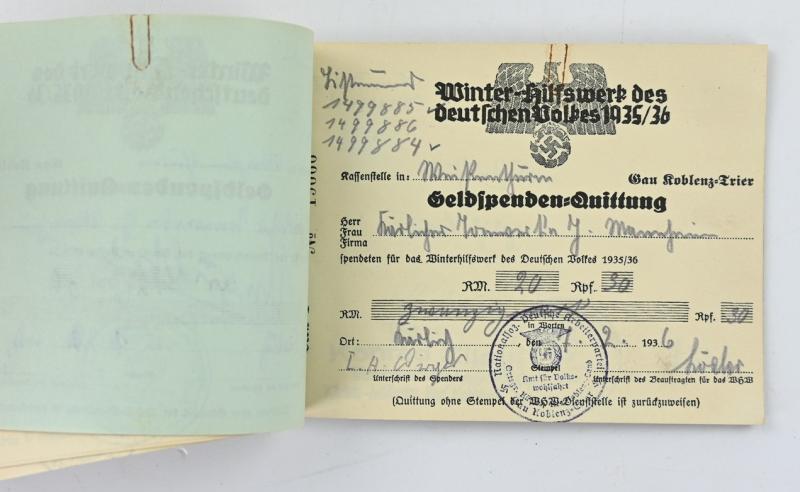 1499885
1499886
1499884
Winter-Hilfswerk des
deutschen Volkes 1935/36
Kassenstelle in: Weißenthurm Gau Koblenz-Trier
Geldspenden-Quittung
Herr
Frau
Firma
Kärlicher J. Mannheim
spendeten für das Winterhilfswerk des Deutschen Volkes 1935/36
RM. 20 Rpf. 30
RM. zwanzig Rpf. 30
in Worten
Ort: Kärlich, den 7. 2. 1936
Stempel
Unterschrift des Spenders Unterschrift des Beauftragten für das WHW
(Quittung ohne Stempel der WHW-Dienststelle ist zurückzuweisen)
Nationalsoz. Deutsche Arbeiterpartei
Amt für Volks-
wohlfahrt
Gau Koblenz-Trier
№ 15000